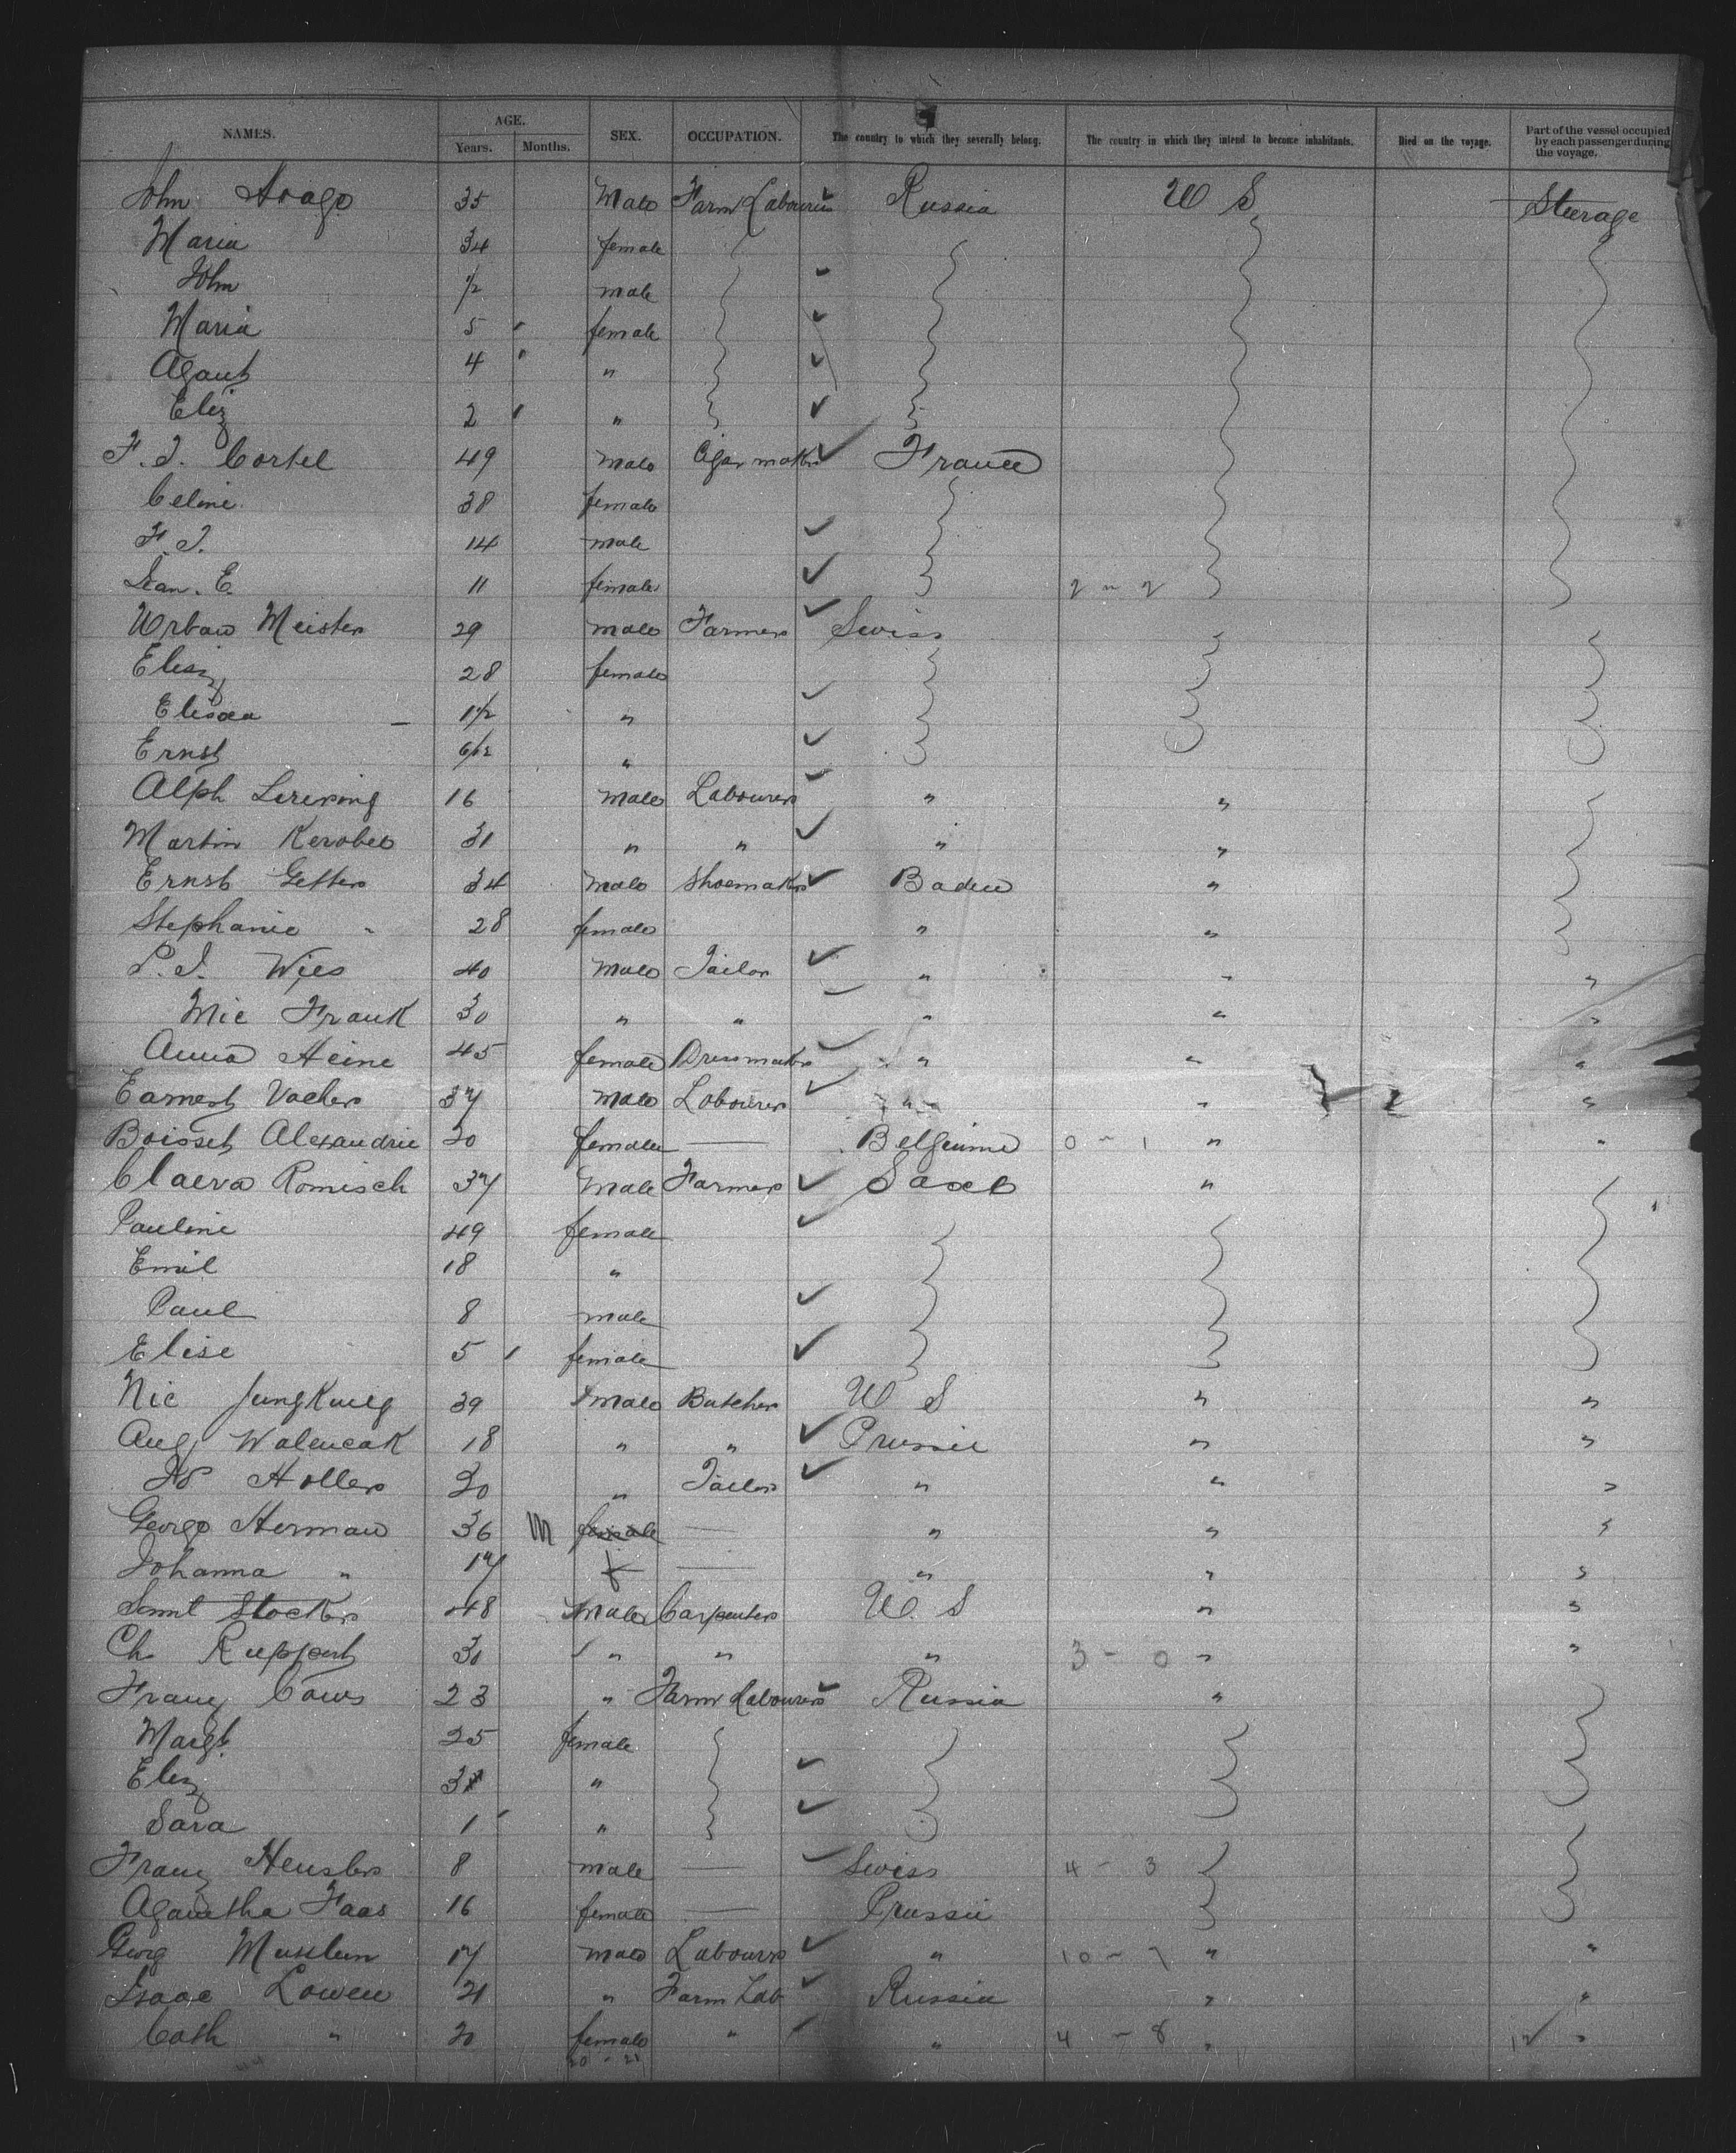 NAMES. AGE. Years. Months. SEX. OCCUPATION. The country to which they severally belong. The country in which they intend to become inhabitants. Died on the voyage. Part of the vessel occupied by each passenger during the voyage.
John 35 Male Farm Labourer Russia U S Steerage
Maria 34 female
John 1/2 male
Maria 5 female
4 "
Eliz 2 "
F. J. Cortel 49 Male Cigar maker France
Celine 38 female
F. J. 14 male
Jean. E. 11 female 2 " 2
Urban Meister 29 male Farmer Swiss
Elisz 28 female
Elisaa 1 1/2 "
Ernst 6/12 "
Alph 16 male Labourer " "
Martin 31 " " " "
Ernst Getter 34 male Shoemaker Baden "
Stephanie " 28 female " "
P. J. Wies 40 Male Tailor " " "
Nic Frank 30 " " " " "
Anna Heine 45 female Dressmaker " " "
Earnest Vacher 37 male Labourer " " "
Boisset Alexandrie 20 female — Belgiume 0 - 1 " "
Romisch 37 Male Farmer "
Pauline 49 female
Emil 18 "
Paul 8 male
Elise 5 female
Nic 39 male Butcher U S " "
Aug 18 " " Prussie " "
Holler 20 " Tailor " " "
George Herman 36 M female — " " "
Johanna " 17 f — " " "
Saml Stocker 48 male Carpenter U. S " "
Ch Ruppert 30 " " " 3 - 0 " "
Franz 23 " Farm Labourer Russia "
Margt. 25 female
Eliz "
Sara 1 "
Franz Heusler 8 male — Swiss 4 - 3
Aganetha Faas 16 female — Prussie
Georg 17 male Labourer " 10 - 7 " "
Isaac Lowen 21 " Farm Lab Russia " "
Cath " 20 female " " 4 - 8 " 12 "
20 - 21